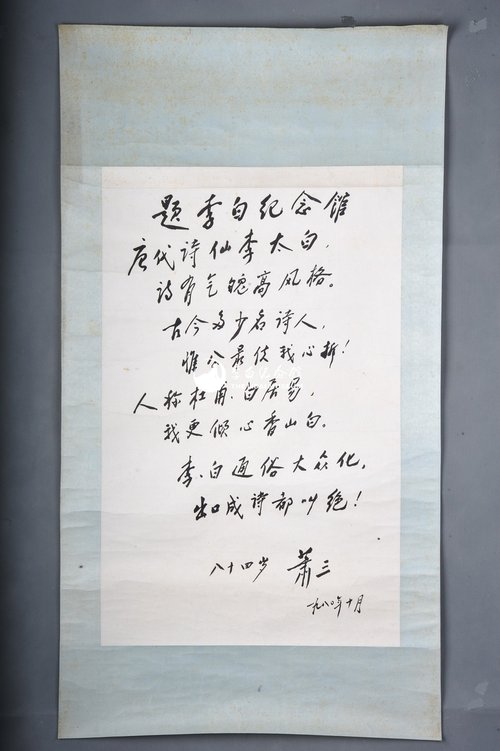 题李白纪念馆
唐代诗仙李太白，
诗有气魄高风格。
古今多少名诗人，
惟公最使我心折！
人称杜甫、白居易，
我更倾心香山白。
李、白通俗大众化，
出口成诗都叫绝！
八十四岁 萧三
一九八〇年十月